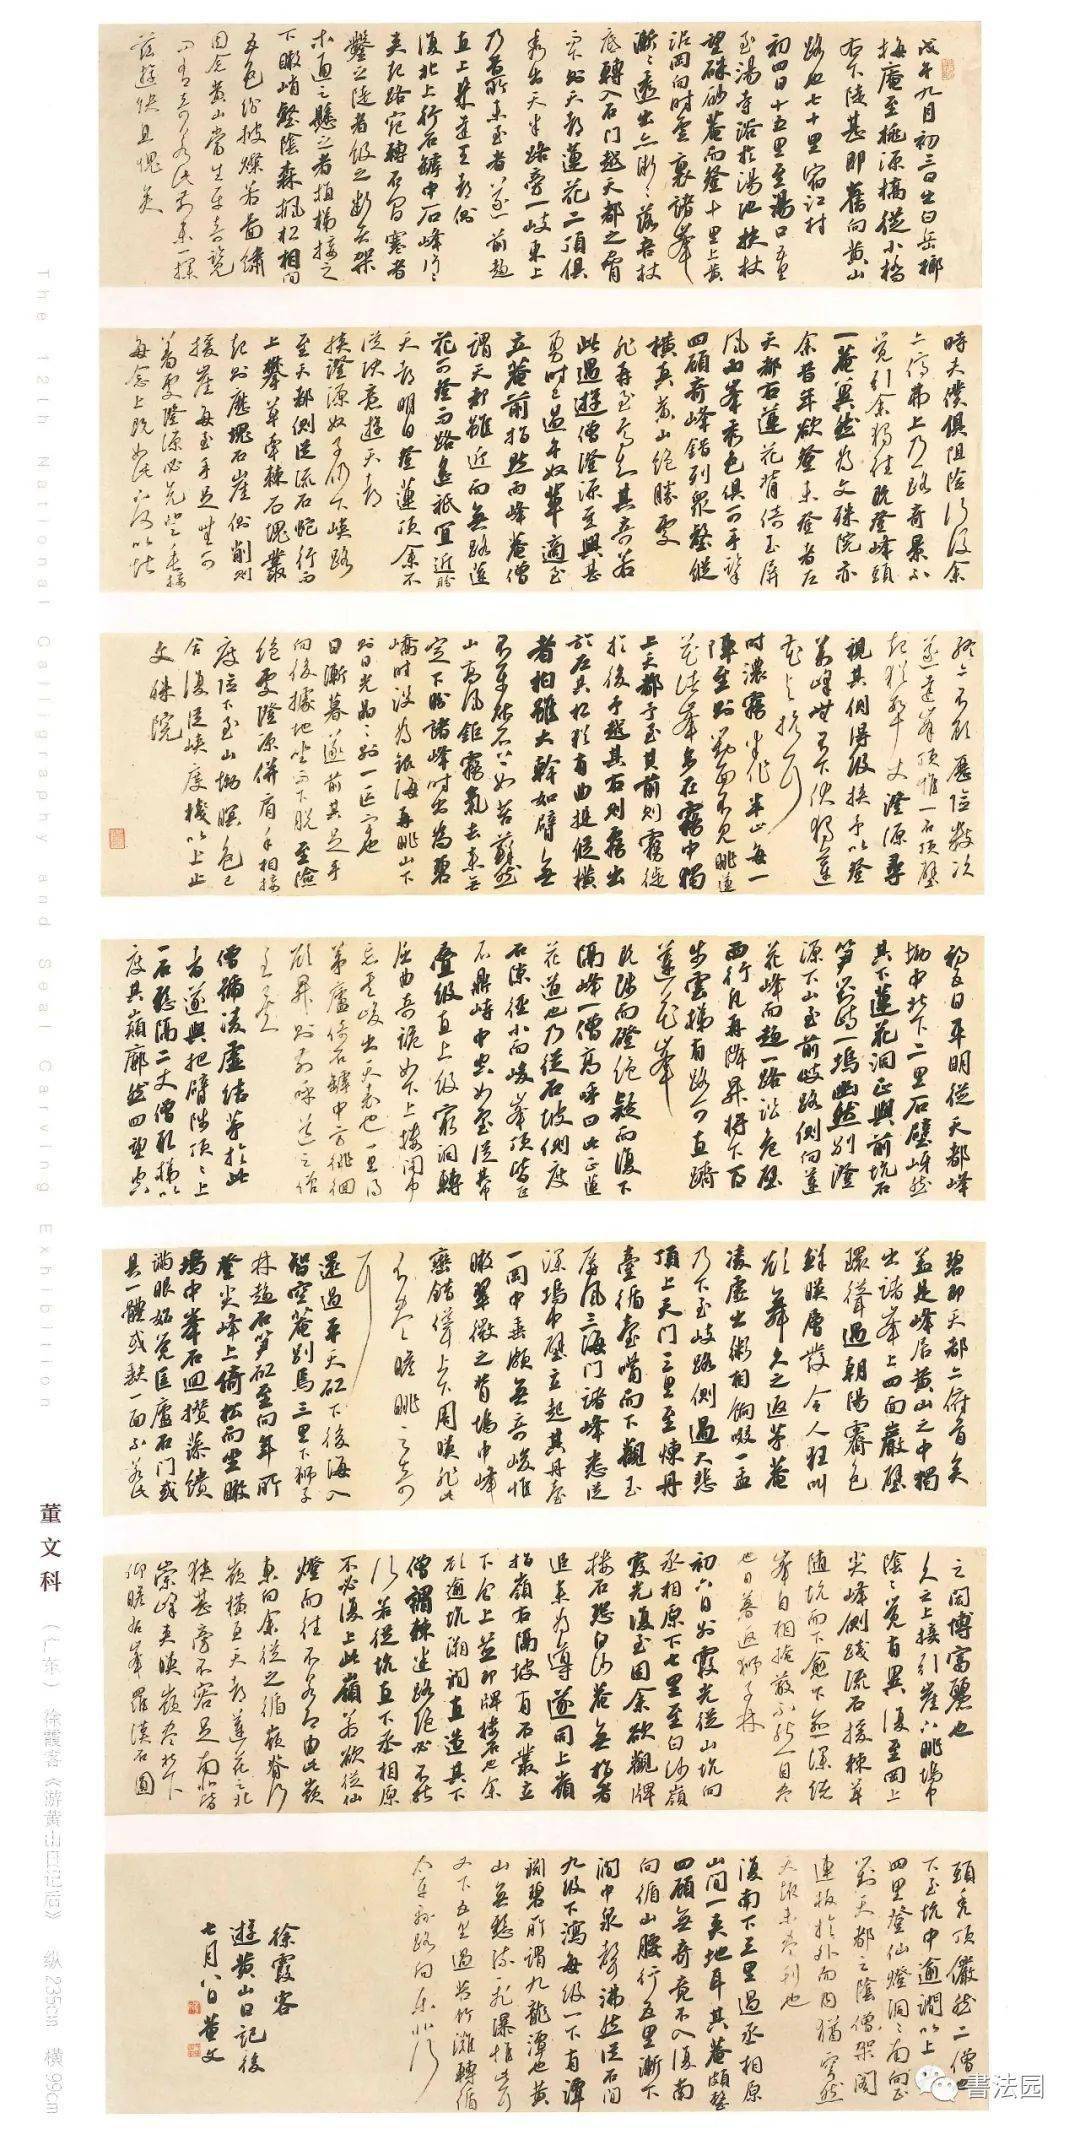 戊午九月初三日出白岳榔
梅庵至桃源橋從小橋
右下陡甚即舊向黃山
路也七十里宿江村
初四日十五里至湯口五里
至湯寺浴於湯池扶杖
望硃砂菴而登十里上黃
泥岡向時雲裏諸峯
漸々透出亦漸々落吾杖
底轉入石門越天都之脅
而下則天都蓮花二頂俱
秀出天半路旁一岐東上
乃昔所未至者遂前趨
直上幾達天都側
復北上行石罅中石峰片々
夾起路宛轉石間塞者
鑿之陡者級之斷者架
木通之懸之者植梯接之
下瞰峭壑陰森楓松相間
五色紛披燦若圖繡
因念黃山當生平奇覽
而有奇若此前未一探
茲遊快且愧矣
時夫僕俱阻險行後余
亦停弗上乃一路奇景不
覺引余獨往既登峰頭
一菴翼然為文殊院亦
余昔年欲登未登者左
天都右蓮花背倚玉屏
風兩峯秀色俱可手擥
四顧奇峰錯列眾壑縱
橫真黃山絕勝處
非再至焉知其奇若
此遇遊僧澄源至興甚
勇時已過午奴輩適至
立菴前指點兩峰菴僧
謂天都雖近而無路蓮
花可登而路遙祇宜近盼
天都明日登蓮頂余不
從決意遊天都
挾澄源奴子仍下峽路
至天都側從流石蛇行而
上攀草牽棘石塊叢
起則歷塊石崖側削則
援崖每至手足無可
著處澄源必先登垂接
每念上既如此下何以堪
終亦不顧歷險數次
遂達峯頂惟一石頂壁
起猶數十丈澄源尋
視其側得級挾予以登
萬峰無不下伏獨蓮
花與抗耳
時濃霧半作半止每一
陣至則對面不見眺蓮
花諸峯多在霧中獨
上天都予至其前則霧徙
於後予越其右則霧出
於左其松猶有曲挺縱橫
者柏雖大幹如臂無
不平貼石上如苔蘚然
山高風鉅霧氣去來無
定下盼諸峰時出為碧
嶠時沒為銀海再眺山下
則日光晶々別一區宇也
日漸暮遂前其足手
向後據地坐而下脫至險
絕處澄源併肩手相接
度險下至山坳暝色已
合復從峽度棧以上止
文殊院
初五日平明從天都峰
坳中北下二里石壁岈然
其下蓮花洞正與前坑石
筍對峙一塢幽然別澄
源下山至前岐路側向蓮
花峰而趨一路沿危壁
西行凡再降昇將下百
步雲梯有路可直躋
蓮花峯
既陟而磴絕疑而復下
隔峰一僧高呼曰此正蓮
花道也乃從石坡側度
石隙徑小而峻峯頂皆巨
石鼎峙中空如室從其中
疊級直上級窮洞轉
屈曲奇詭如下上樓閣中
忘其峻出天表也一里得
茅廬倚石罅中方徘徊
欲昇則前呼道之僧
至矣
僧號淩虛結茅於此
者遂與把臂陟頂々上
一石懸隔二丈僧取梯以
度其巔廓然四望空
碧即天都亦俯首矣
蓋是峰居黃山之中獨
出諸峯上四面巖壁
環聳遇朝陽霽色
鮮映層發令人狂叫
欲舞久之返茅菴
凌虛出粥相餉啜一盂
乃下至岐路側過大悲
頂上天門三里至煉丹
臺循臺嘴而下觀玉
屏風三海門諸峰悉從
深塢中壁立起其丹臺
一岡中垂頗無奇峻惟
瞰翠微之背塢中峰
巒錯聳上下周映非此
不盡瞻眺之奇
耳
還過平天矼下後海入
智空菴別焉三里下獅子
林趨石筍矼至向年所
登尖峰上倚松而坐瞰
塢中峯石迴攢藻繢
滿眼始覺匡廬石門或
具一體或缺一面不若此
之閎博富麗也
久之上接引崖下眺塢中
陰々覺有異復至岡上
尖峰側踐流石援棘草
隨坑而下愈下愈深諸
峯自相掩蔽不能一目盡
也日暮返獅子林
初六日別霞光從山坑向
丞相原下七里至白沙嶺
霞光復至因余欲觀牌
樓石恐白沙菴無指者
追來為導遂同上嶺
指嶺右隔坡有石叢立
下分上並即牌樓石也余
欲逾坑溯澗直造其下
僧謂棘迷路絕必不能
行若從坑直下丞相原
不必復上此嶺若欲從仙
燈而往不若即由此嶺
東向余從之循嶺脊行
嶺橫亙天都蓮花之北
狹甚旁不容足南北皆
崇峰夾映嶺盡北下
仰瞻右峯羅漢石圓
頭禿頂儼然二僧也
下至坑中逾澗以上
四里登仙燈洞々南向正
對天都之陰僧架閣
連板於外而內猶穹然
天趣未盡刊也
復南下三里過丞相原
山間一夾地耳其菴頗整
四顧無奇竟不入復南
向循山腰行五里漸下
澗中泉聲沸然從石間
九級下瀉每級一下有潭
淵碧所謂九龍潭也黃
山無懸流飛瀑惟此耳
又下五里過苦竹灘轉循
太平縣路向東北行
徐霞客
遊黃山日記後
七月八日董文
The 12th National Calligraphy and Seal Carving Exhibition
董文科（广东）徐霞客《游黄山日记后》 纵235cm 横99cm
書法园